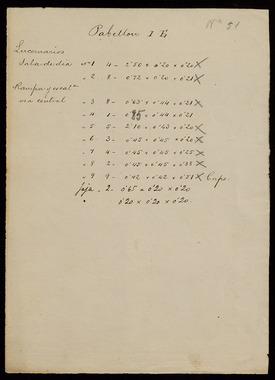 Nº 51
Pabellon I E
Lucernarios
Sala de dia nº 1 4 - 2'50 × 0'20 × 0'20 X
" 2 8 - 0'72 × 0'20 × 0'21 X
Rampa y escalª
via central " 3 8 - 0'65 × 0'44 × 0'21 X
" 4 1 - 0'85 × 0'44 × 0'21
" 5 5 - 2'10 × 0'43 × 0'20 X
" 6 3 - 0'45 × 0'45 × 0'20 X
" 7 4 - 0'45 × 0'45 × 0'25 X
" 8 2 - 0'45 × 0'45 × 0'35 X
" 9 9 - 0'42 × 0'42 × 0'51 X
faja 2 - 0'65 × 0'20 × 0'20
" 0'20 × 0'20 × 0'20